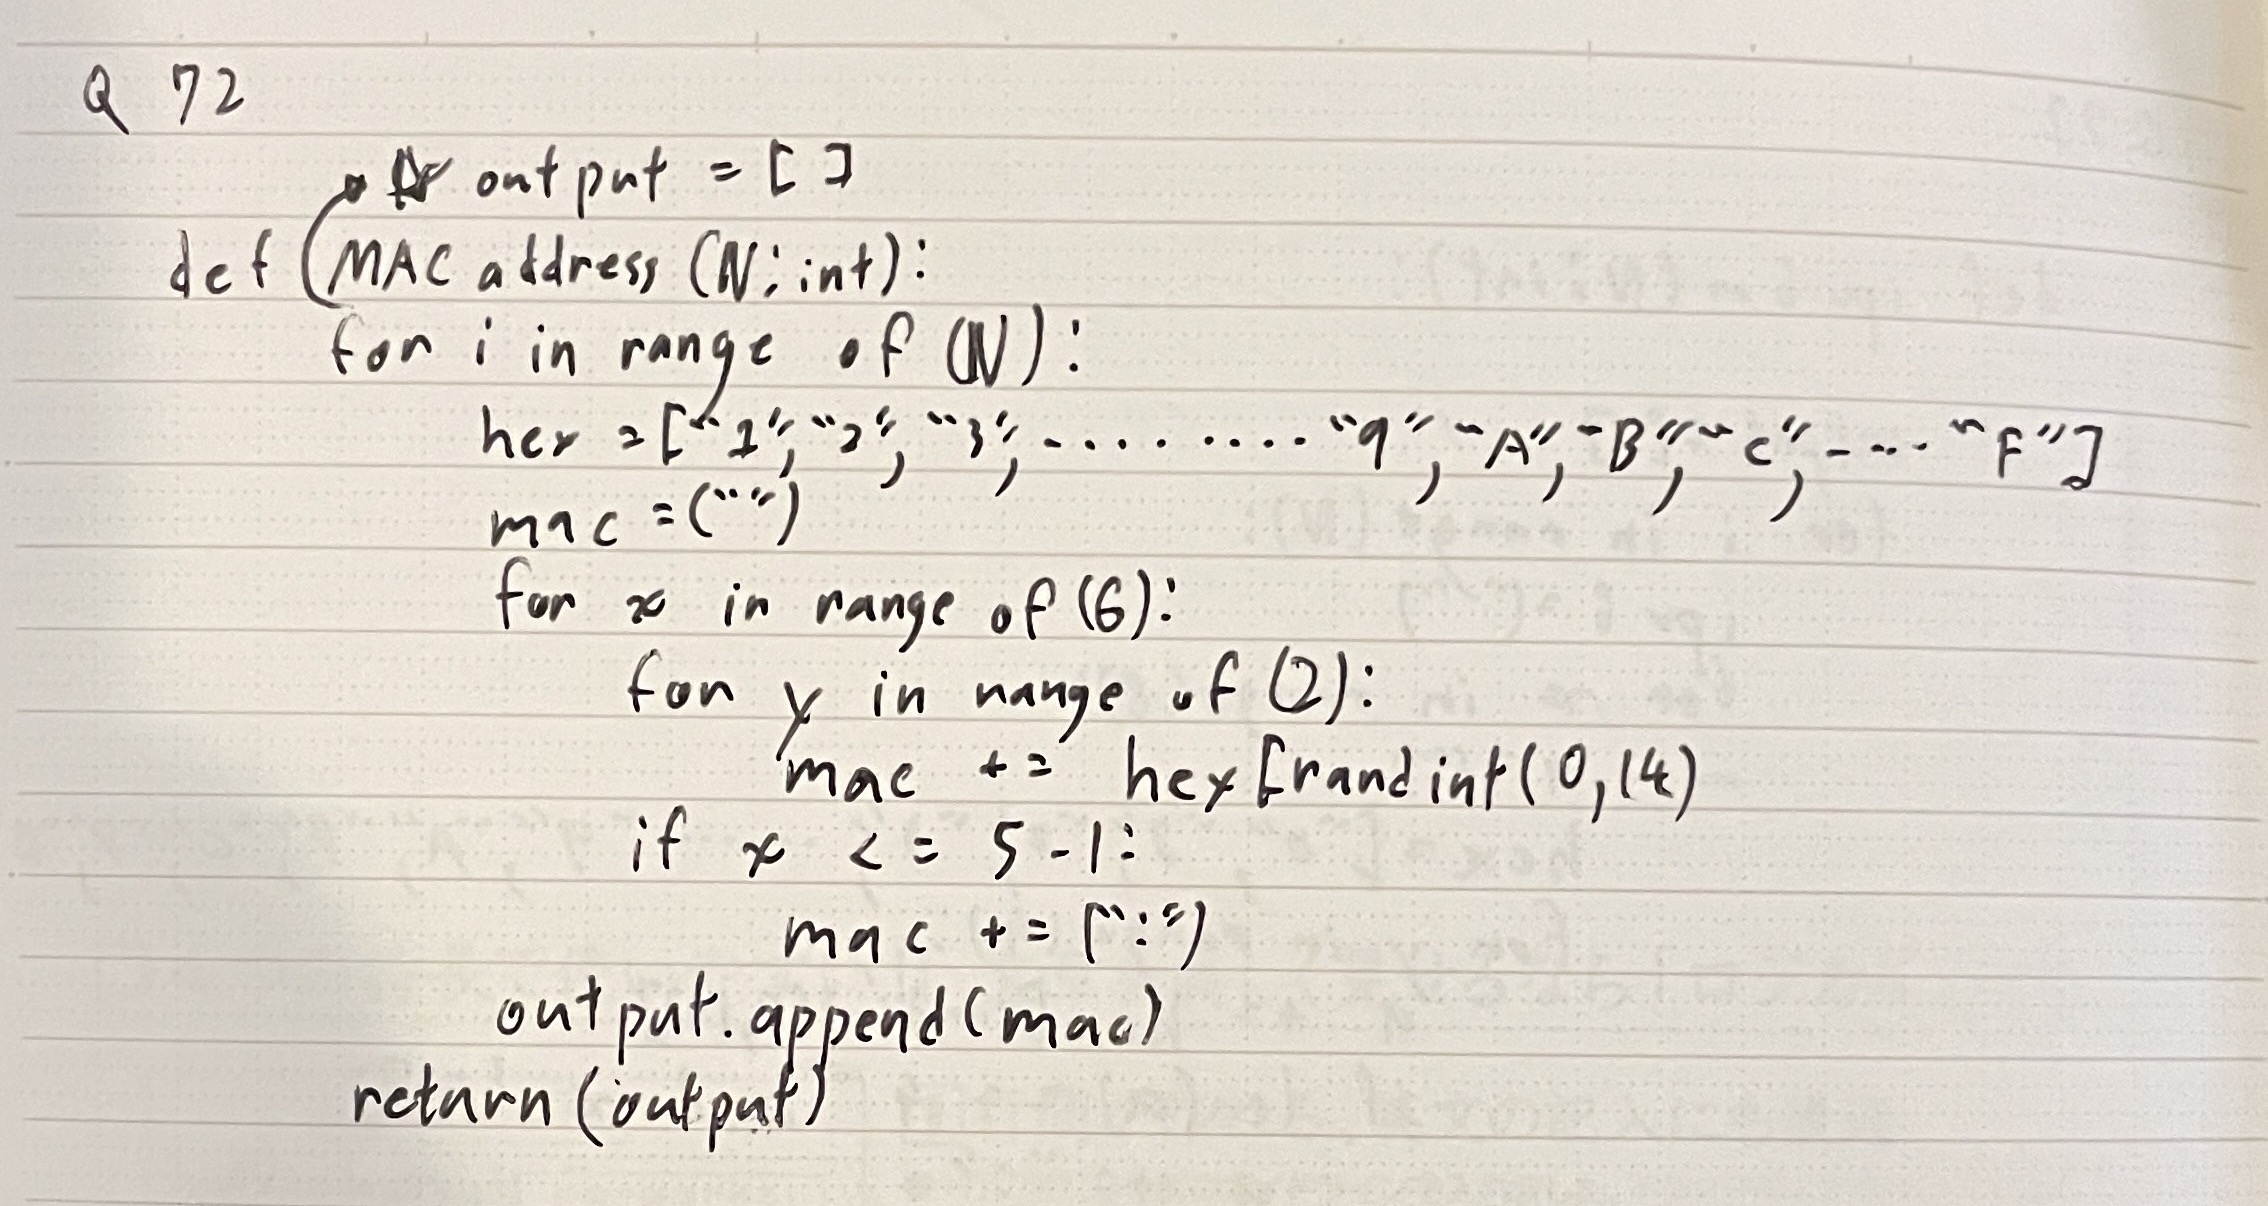 Q 72
output = [ ]
def MAC address (N: int):
for i in range of (N):
hex = ["1", "2", "3", - . . . . . . . . "9", "A", "B", "C", - - . . "F"]
mac = ("")
for x in range of (6):
for y in range of (2):
mac += hex[randint(0,14)
if x <= 5-1:
mac += (":")
output.append(mac)
return (output)